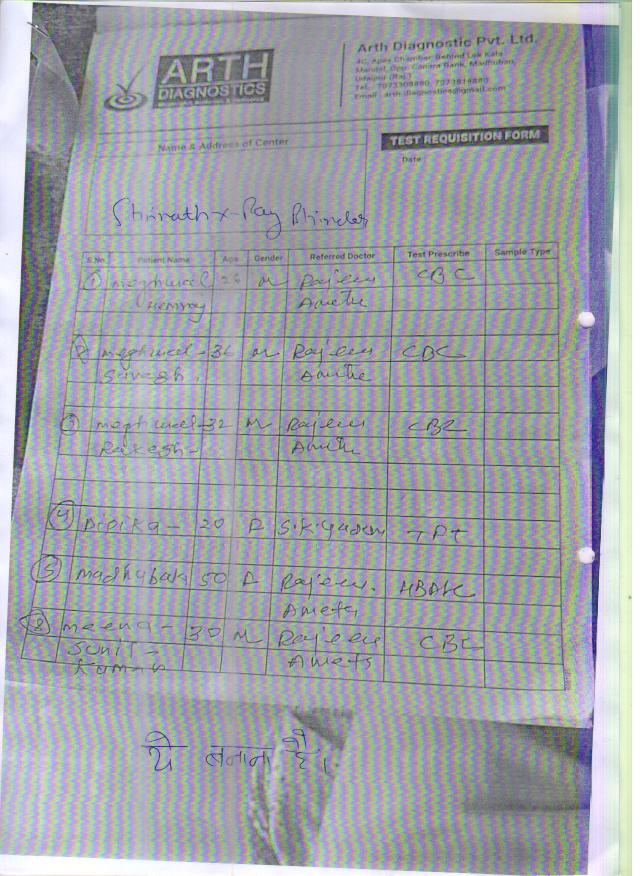 ARTH
DIAGNOSTICS
Arth Diagnostic Pvt. Ltd.
4C, Apex Chamber Behind Lok Kala
Mandal, Opp. Canara Bank, Madhuban,
Udaipur (Raj.)
Tel.: 7073308880, 7073818880
Email : arth.diagnostics@gmail.com
TEST REQUISITION FORM
Name & Address of Center
Date :
Shrinath X-Ray Bhinder
S.No. Patient Name Age Gender Referred Doctor Test Prescribe Sample Type
① meghwal 26 M Rajeev CBC
Hemraj Ametha
2 meghwal - 36 M Rajeev CBC
Suresh. Ametha
③ meghwal - 32 M Rajeev CBC
Rakesh - Ametha
④ Dipika - 20 F S.K. Yadav TPT
⑤ Madhubala 50 F Rajeev. HBA1C
Ameta
⑧ meena - 30 M Rajeev CBC
Sunil - Ameta
Kumar
ये बनाना है।